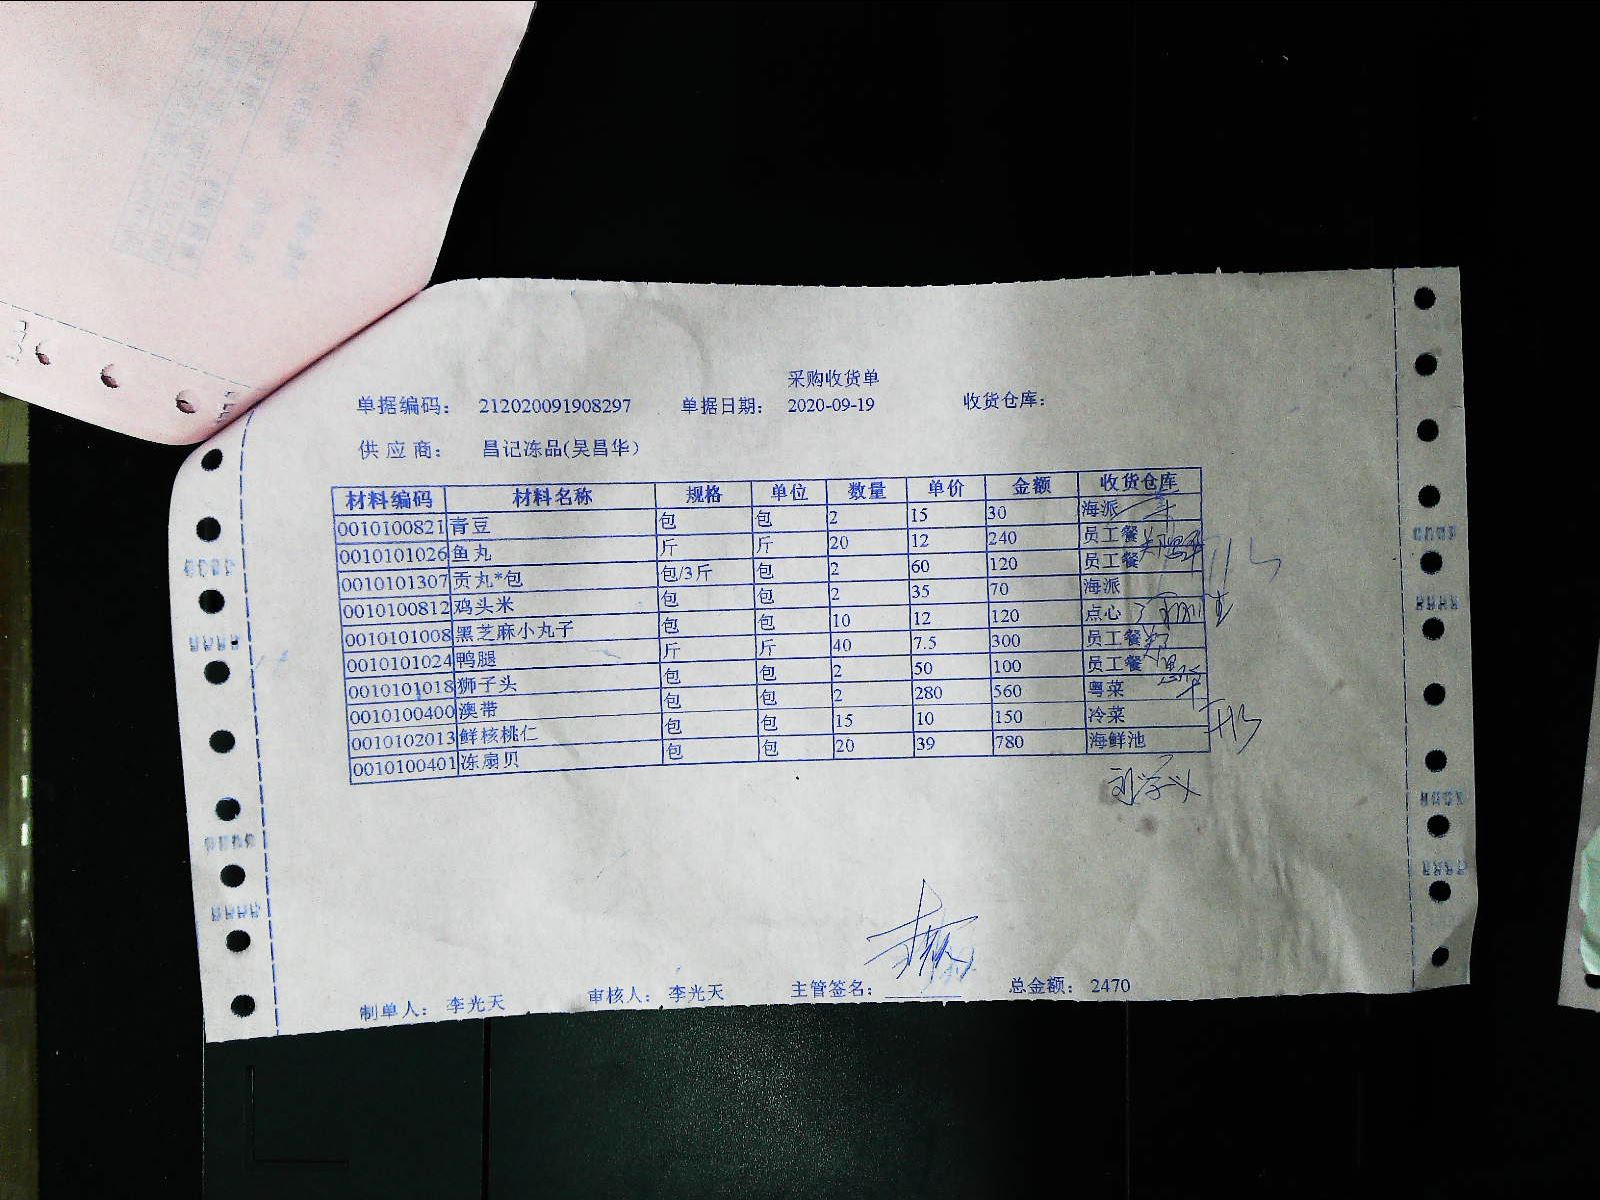 采购收货单
单据编码： 212020091908297 单据日期： 2020-09-19 收货仓库：
供 应 商： 昌记冻品(吴昌华)
材料编码 材料名称 规格 单位 数量 单价 金额 收货仓库
0010100821 青豆 包 包 2 15 30 海派
0010101026 鱼丸 斤 斤 20 12 240 员工餐
0010101307 贡丸*包 包/3斤 包 2 60 120 员工餐
0010100812 鸡头米 包 包 2 35 70 海派
0010101008 黑芝麻小丸子 包 包 10 12 120 点心
0010101024 鸭腿 斤 斤 40 7.5 300 员工餐
0010101018 狮子头 包 包 2 50 100 员工餐
0010100400 澳带 包 包 2 280 560 粤菜
0010102013 鲜核桃仁 包 包 15 10 150 冷菜
0010100401 冻扇贝 包 包 20 39 780 海鲜池
制单人： 李光天 审核人： 李光天 主管签名： 总金额： 2470